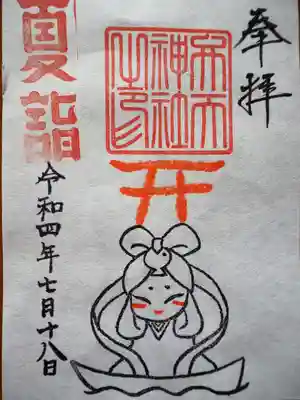 奉拝
神社
之印
夏詣
令和四年七月十八日